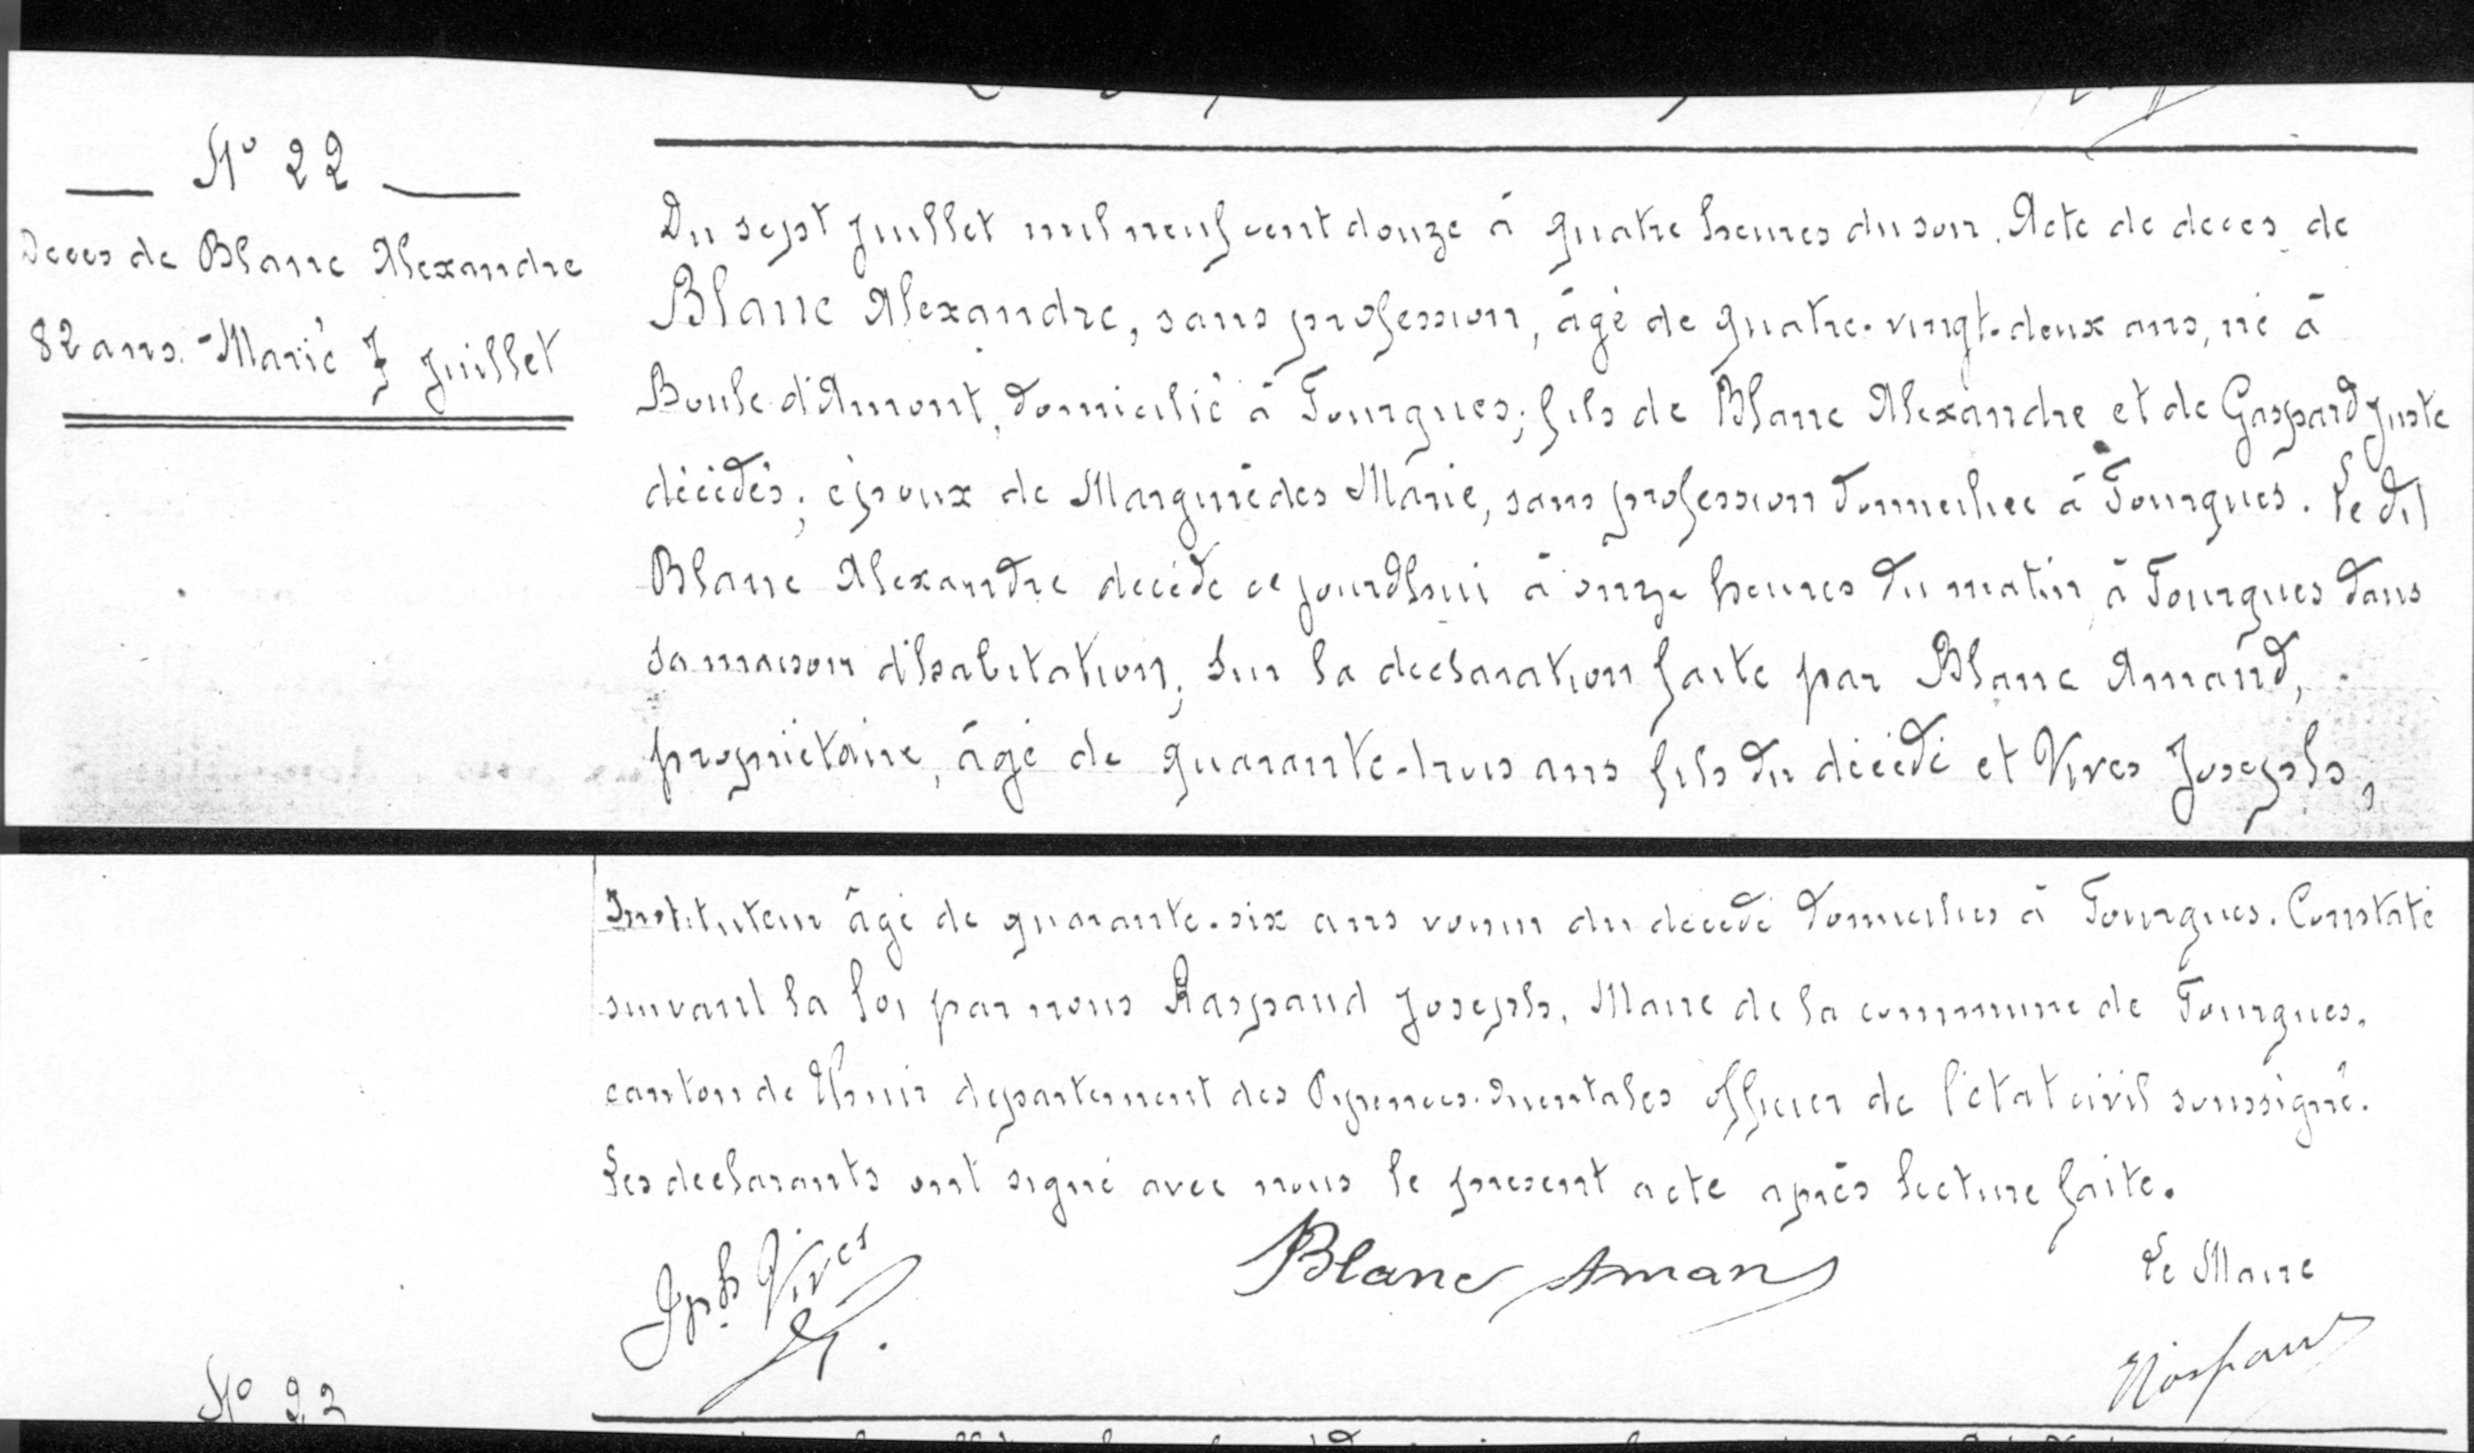 N° 22
Deces de Blanc Alexandre
82 ans. - Marié 7 Juillet
Du sept Juillet mil neuf cent douze à quatre heures du soir. Acte de deces de
Blanc Alexandre, sans profession, âgé de quatre-vingt-deux ans, né à
Boule-d'Amont, domicilié à Fourques; fils de Blanc Alexandre et de Gaspard Juste
décédés; époux de Marguerides Marie, sans profession domiciliee à Fourques. Le dit
Blanc Alexandre decédé ce jourd'hui à onze heures du matin à Fourques dans
sa maison d'habitation, sur la declaration faite par Blanc Amand,
propriétaire, âgé de quarante-trois ans fils du décédé et Vives Joseph,
Instituteur âgé de quarante-six ans voisin du décédé domicilies à Fourques. Constaté
suivant la loi par nous Raspaud Joseph, Maire de la commune de Fourques,
canton de Thuir departement des Pyrenees-Orientales officier de l'état civil soussigné.
Les declarants ont signé avec nous le present acte après lecture faite.
Jph Vives
Blanc Aman
Le Maire
Raspaud
N° 22